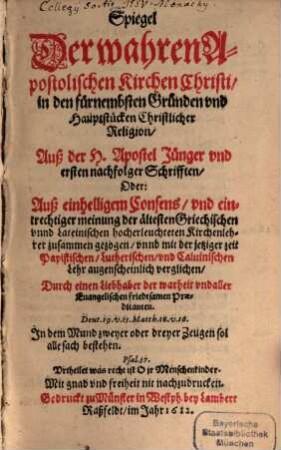 Collegij Soctis IESV Monachij
Spiegel
Der wahren A-
postolischen Kirchen Christi/
in den fürnembsten Gründen vnd
Hauptstücken Christlicher
Religion/
Auß der H. Apostel Jünger vnd
ersten nachfolger Schrifften/
Oder:
Auß einhelligem Consens/ vnd ein-
trechtiger meinung der ältesten Griechischen
vnnd Lateinischen hocherleuchteren Kirchenleh-
rer zusammen gezogen/ vnnd mit der jetziger zeit
Papistischen/ Lutherischen/ vnd Caluinischen
Lehr augenscheinlich verglichen/
Durch einen liebhaber der warheit vnd aller
Euangelischen friedtsamen Præ-
dicanten.
Deut. 19. v. 15. Matth. 18. v. 16.
In dem Mund zweyer oder dreyer Zeugen sol
alle sach bestehen.
Psal. 57.
Vrtheilet was recht ist O jr Menschenkinder.
Mit gnad vnd freiheit nit nachzudrucken.
Gedruckt zu Münster in Westph. bey Lambert
Raßfeldt/ im Jahr 1612.
Bayerische
Staatsbibliothek
München